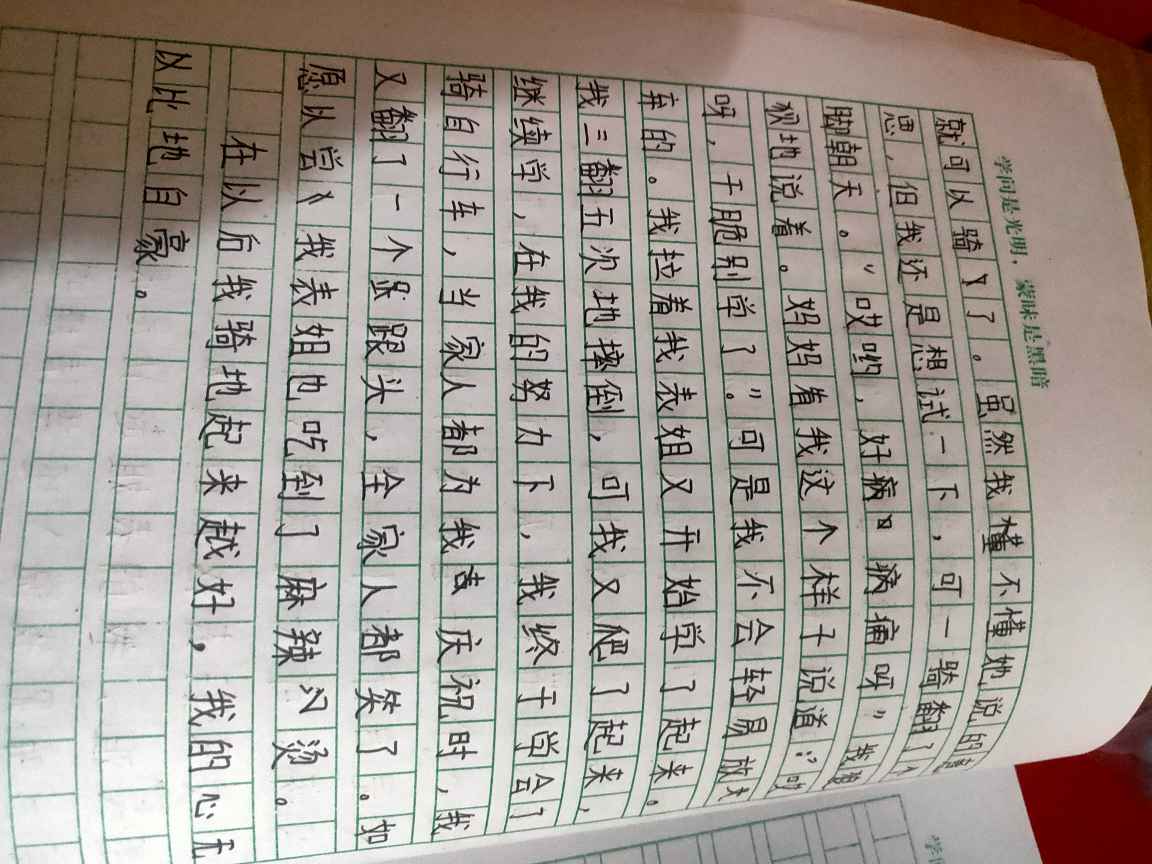 学问是光明，蒙昧是黑暗
就可以骑了。虽然我懂不懂她说的意
思，但我还是想试一下，可一骑翻了个
脚朝天。“哎哟，好痛痛呀”我
地说着。妈妈看我这个样子说道：“哎
呀，干脆别学了”。可是我不会轻易放
弃的。我拉着我表姐又开始学了起来。
我三翻五次地摔倒，可我又爬了起来，
继续学，在我的努力下，我终于学会了
骑自行车，当家人都为我喜庆祝时，我
又翻了一个跟头，全家人都笑了。如
愿以尝，我表姐也吃到了麻辣烫。
在以后我骑地起来越好，我的心无
以比地自豪。
学问